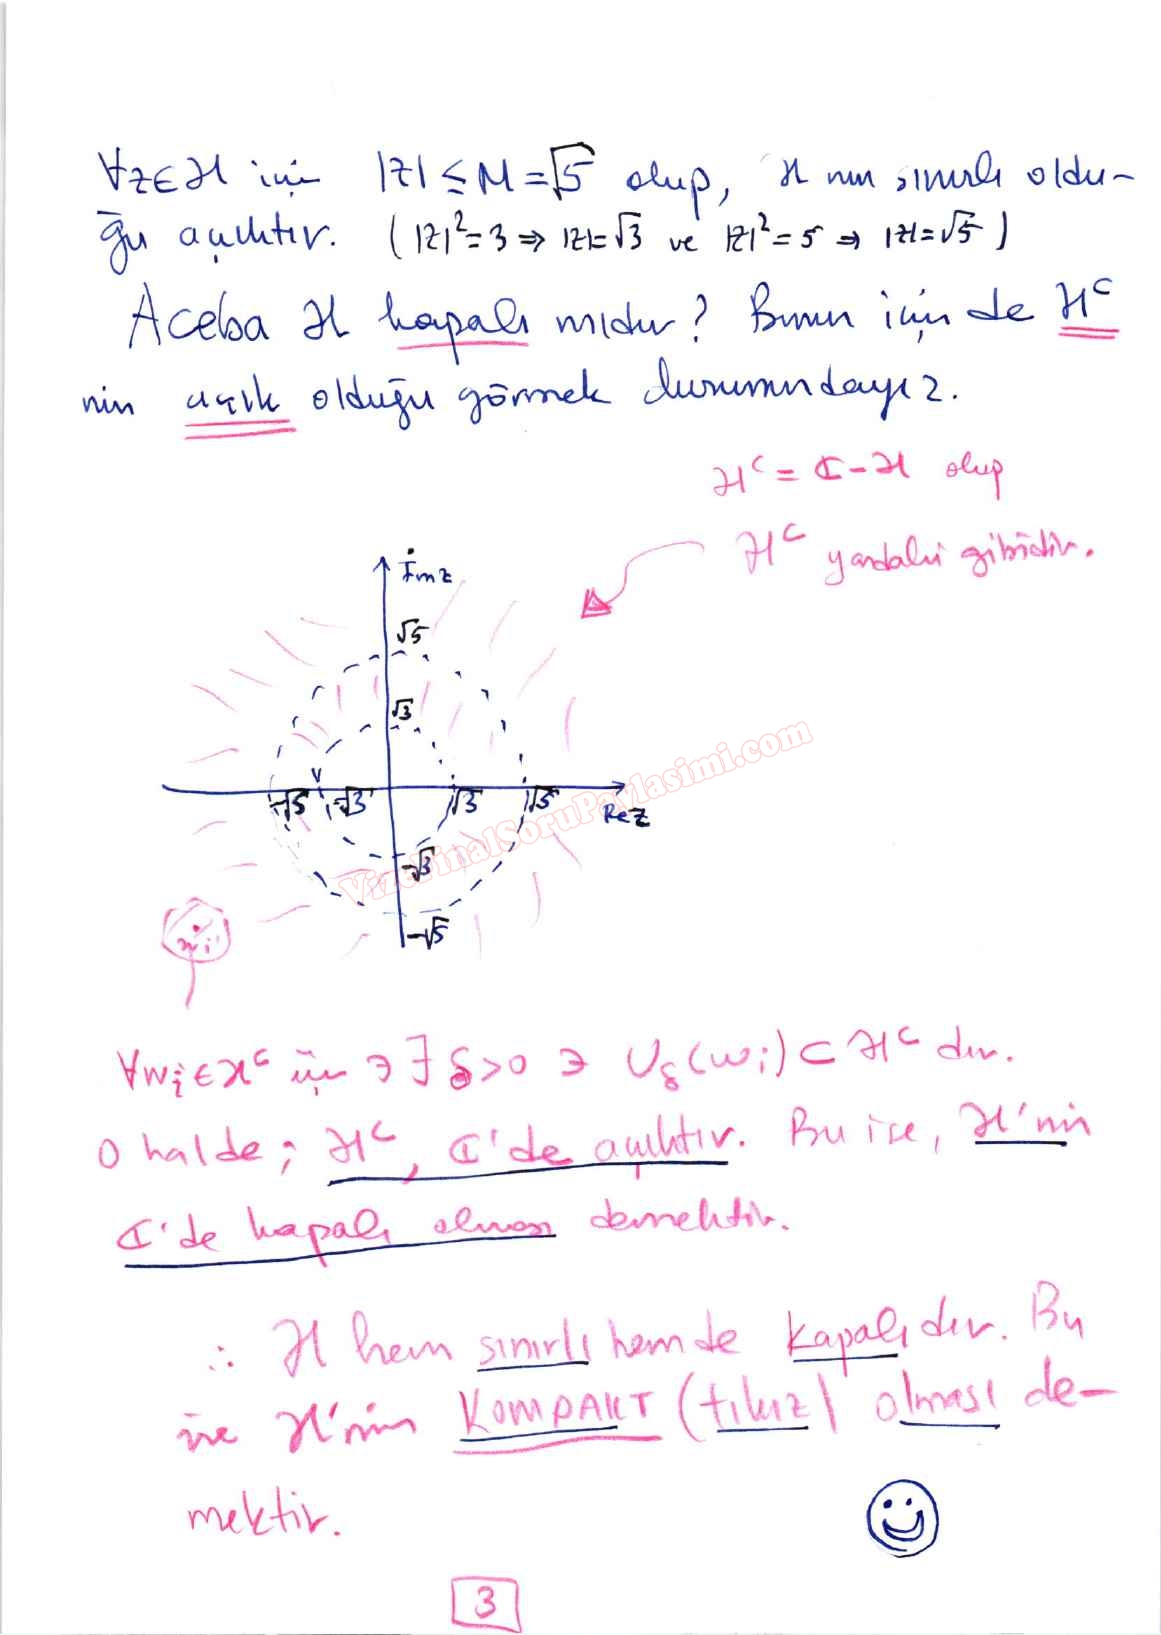 ∀z∈ℋ için |z| ≤ M = √5 olup, ℋ nın sınırlı oldu-
ğu açıktır. ( |z|² = 3 ⇒ |z| = √3 ve |z|² = 5 ⇒ |z| = √5 )
Acaba ℋ kapalı mıdır? Bunun için de ℋᶜ
nin açık olduğu görmek durumundayız.
ℋᶜ = ℂ - ℋ olup
ℋᶜ yandaki gibidir.
İmz
√5
√3
-√5 -√3 √3 √5
Rez
-√3
-√5
wi
VizeFinalSoruPaylasimi.com
∀wi∈ℋᶜ için ∋ ∃ δ>0 ∋ Uδ(wi) ⊂ ℋᶜ dır.
O halde; ℋᶜ, ℂ'de açıktır. Bu ise, ℋ'nin
ℂ'de kapalı olması demektir.
∴ ℋ hem sınırlı hem de kapalıdır. Bu
ise ℋ'nın KOMPAKT (tıkız) olması de-
mektir.
3